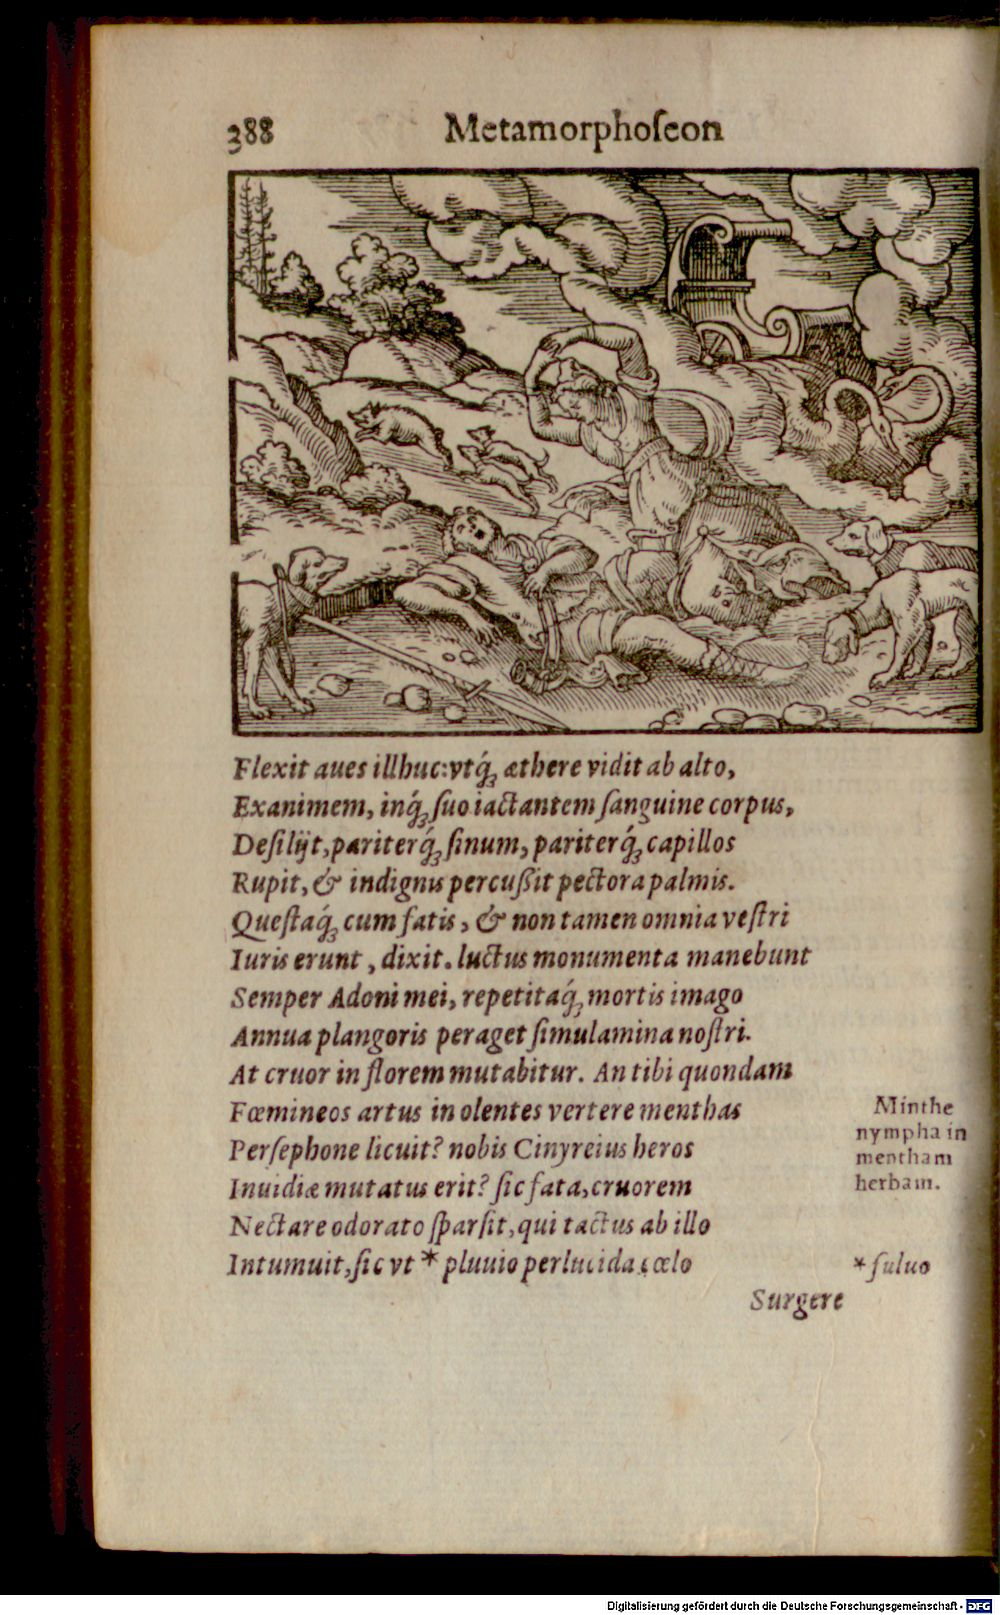 388 Metamorphoſeon
Flexit aues illhuc:vtq́ꝫ æthere vidit ab alto,
Exanimem, inq́ꝫ ſuo iactantem ſanguine corpus,
Deſilijt, pariterq́ꝫ ſinum, pariterq́ꝫ capillos
Rupit, & indignis percuſsit pectora palmis.
Queſtaq́ꝫ cum fatis, & non tamen omnia veſtri
Iuris erunt, dixit. luctus monumenta manebunt
Semper Adoni mei, repetitaq́ꝫ mortis imago
Annua plangoris peraget ſimulamina noſtri.
At cruor in florem mutabitur. An tibi quondam
Fœmineos artus in olentes vertere menthas
Perſephone licuit? nobis Cinyreius heros
Inuidiæ mutatus erit? ſic fata, cruorem
Nectare odorato ſparſit, qui tactus ab illo
Intumuit, ſic vt * pluuio perlucida cœlo
Surgere
Minthe
nympha in
mentham
herbam.
* fuluo
Digitalisierung gefördert durch die Deutsche Forschungsgemeinschaft - DFG